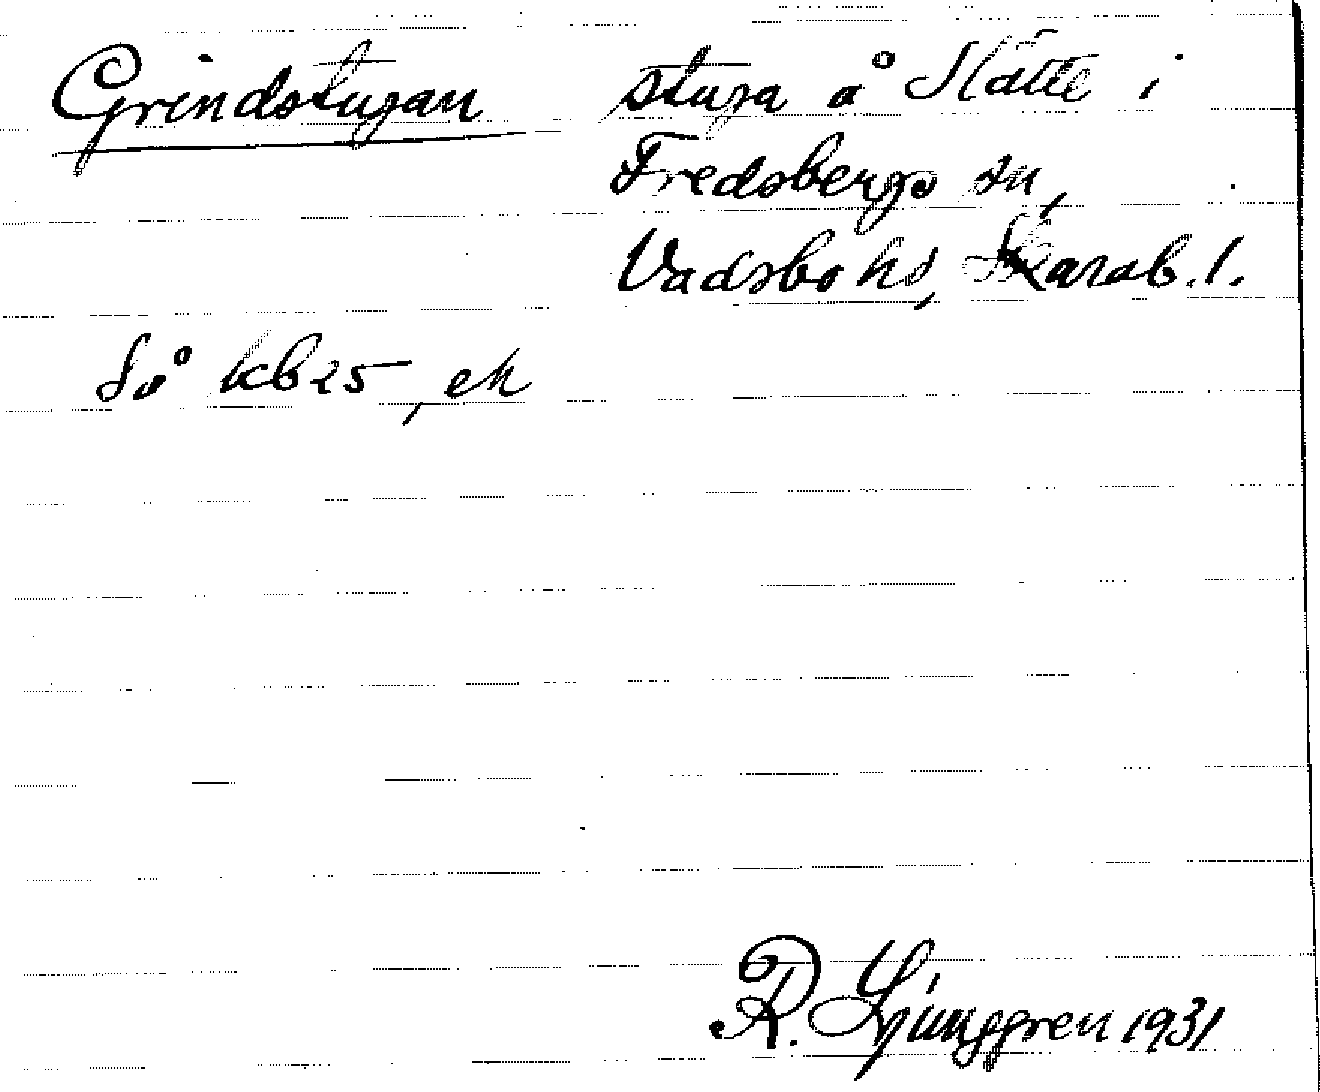 Grindstugan stuga å Slätte i
Fredsbergs sn,
Vadsbo hd, Skarab. l.
Så kb 25, ek
R. Ljunggren 1931